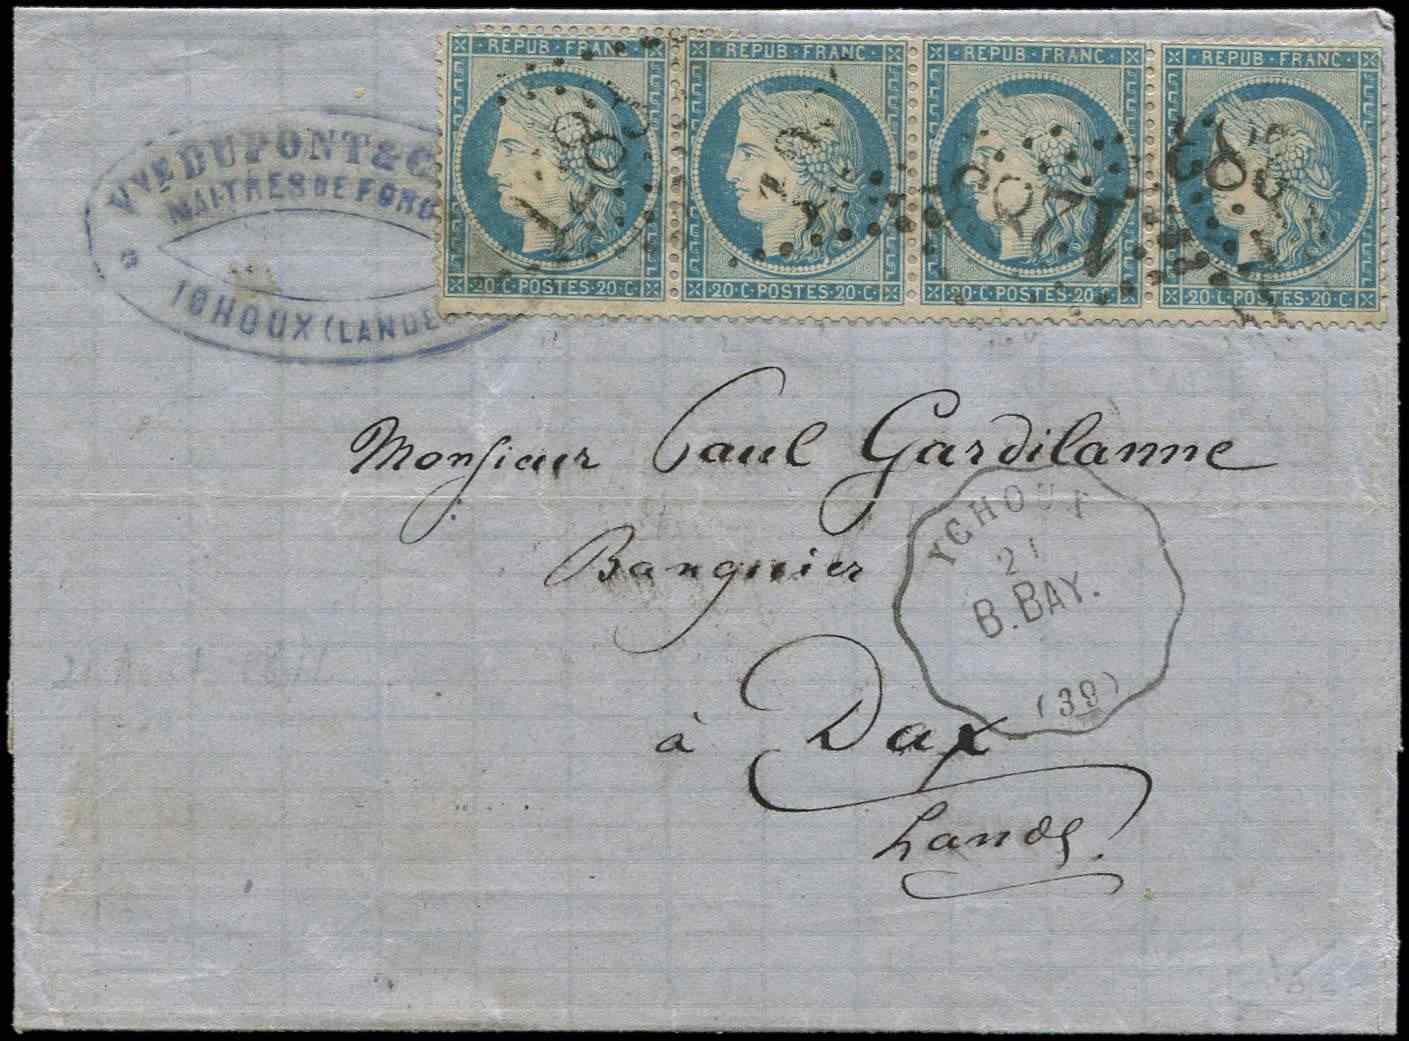 REPUB·FRANC REPUB·FRANC REPUB·FRANC REPUB·FRANC
20·C·POSTES·20·C· 20·C·POSTES·20·C· 20·C·POSTES·20·C· 20·C·POSTES·20·C·
VVE DUPONT & C
MAITRES DE FORG
ICHOUX (LANDE
Monsieur Paul Gardilanne
Banquier
à Dax
Landes
YCHOUX
21
B.BAY.
(39)